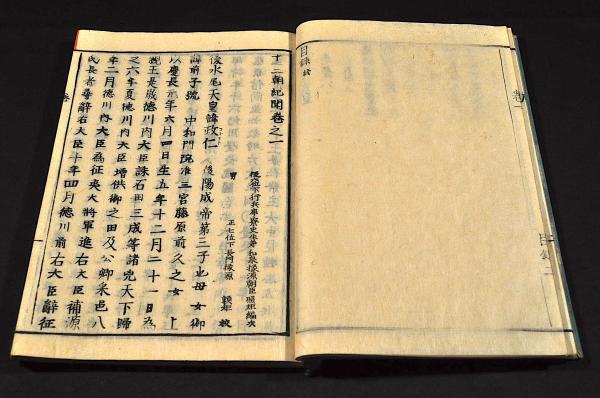 目録終
十二朝紀聞卷之一
行兵庫寮史生兼和泉掾源朝臣照矩編次
男 正七位下長門掾源 校
後水尾天皇諱政仁 後陽成帝第三子也母女御
諱前子號 中和門院准三宮藤原前久之女 上
以慶長元年六月四日生五年十二月二十一日為
親王是歲德川內大臣誅石田三成等諸兇天下歸
之六年夏德川內大臣增供御之田及公卿采邑八
年二月德川內大臣為征夷大將軍進右大臣補源
氏長者尋辭右大臣十年四月德川前右大臣辭征